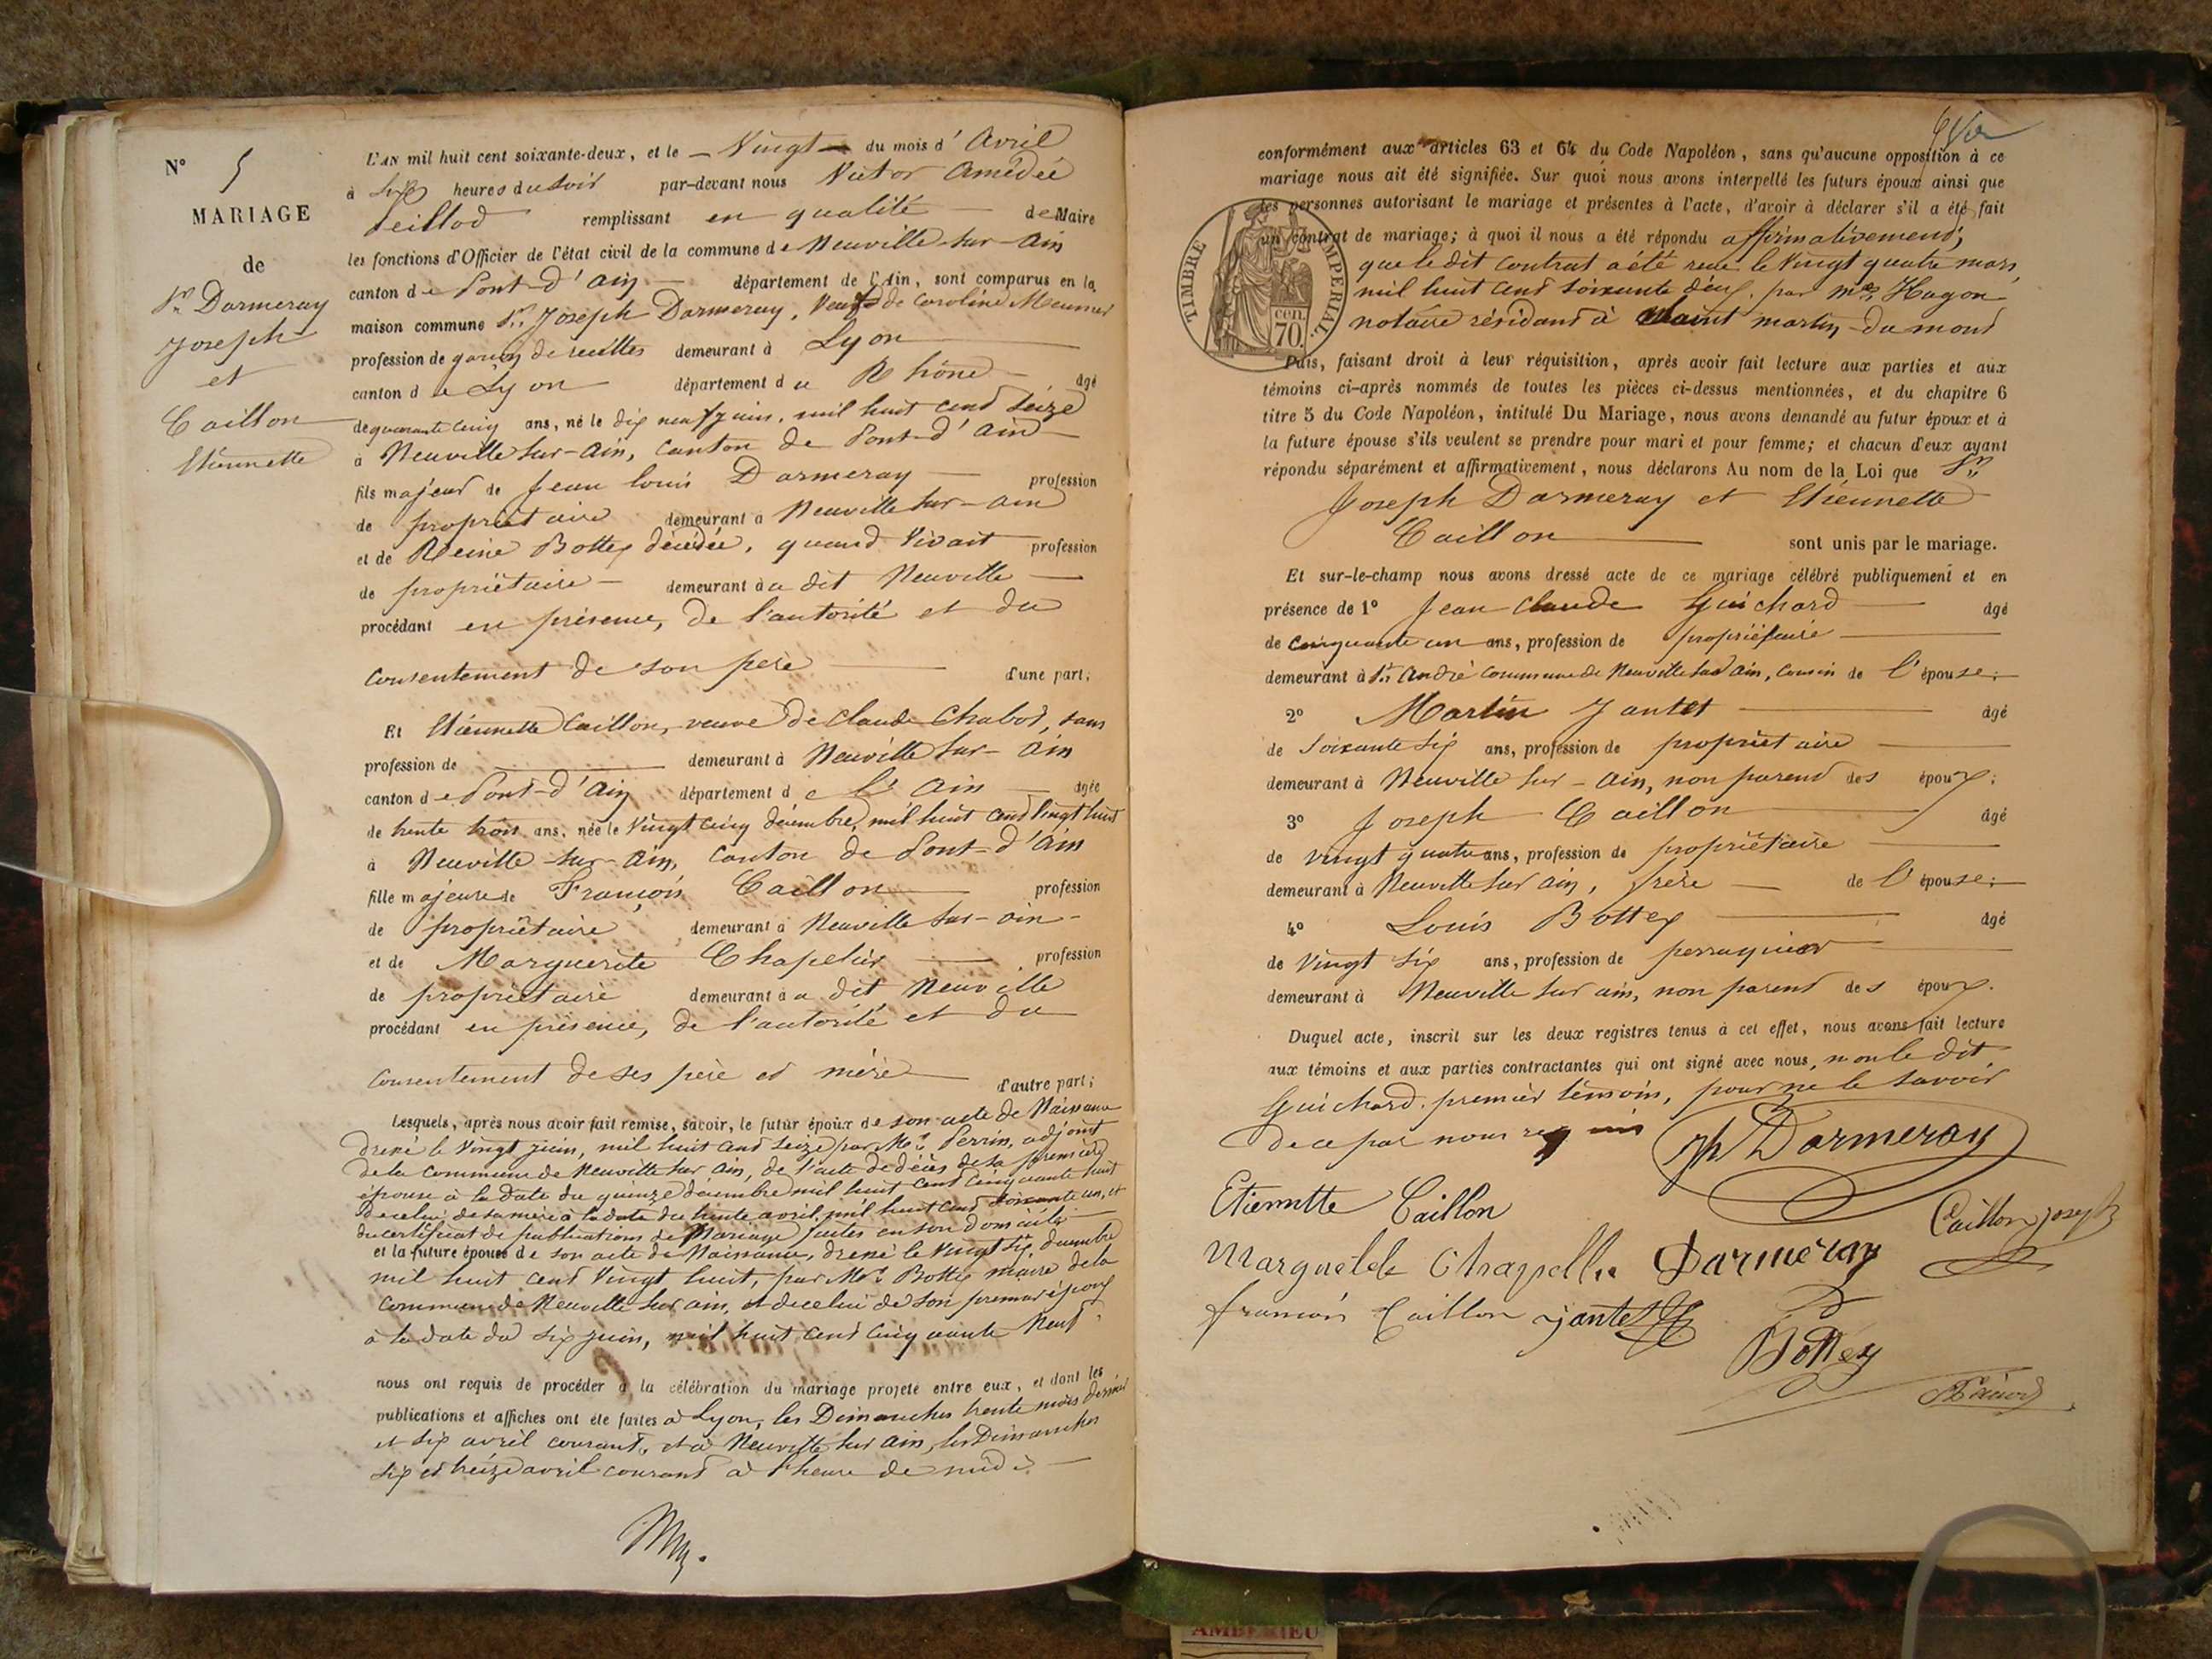 N° 5
MARIAGE
de
Sr Darmeray
Joseph
et
Caillon
Etiennette
L'AN mil huit cent soixante-deux, et le Vingt du mois d'Avril
à six heures du soir par-devant nous Victor Amédée
remplissant en qualité de Maire
les fonctions d'Officier de l'état civil de la commune de Neuville-sur-Ain
canton de Pont-d'Ain département de l'Ain, sont comparus en la
maison commune Sr Joseph Darmeray, Veuf de Caroline Meunier
profession de garçon de recettes demeurant à Lyon
canton de Lyon département du Rhône âgé
de quarante cinq ans, né le dix neuf juin, mil huit cent seize
à Neuville sur-Ain, canton de Pont-d'Ain
fils majeur de Jean Louis Darmeray profession
de propriétaire demeurant à Neuville sur-Ain
et de Reine Bottex décédée, quand vivait profession
de propriétaire demeurant au dit Neuville
procédant en présence, de l'autorité et du
consentement de son père d'une part;
Et Etiennette Caillon, veuve de Claude Chabot, sans
profession de demeurant à Neuville sur-Ain
canton de Pont-d'Ain département de l'Ain âgée
de trente trois ans, née le vingt cinq décembre, mil huit cent vingt huit
à Neuville-sur-Ain, canton de Pont-d'Ain
fille majeure de François Caillon profession
de propriétaire demeurant à Neuville sur-ain
et de Marguerite Chapelier profession
de propriétaire demeurant au dit Neuville
procédant en présence, de l'autorité et du
consentement de ses père et mère d'autre part;
Lesquels, après nous avoir fait remise, savoir, le futur époux de son acte de Naissance
dressé le vingt juin, mil huit cent seize par Mr Perrin, adjoint
de la commune de Neuville sur ain, de l'acte de décès de sa première
épouse à la date du quinze décembre mil huit cent cinquante huit
de celui de sa mère à la date du trente avril mil huit cent soixante un, et
du certificat de publications de Mariage faites en son domicile
et la future épouse de son acte de Naissance, dressé le vingt six, décembre
mil huit cent vingt huit, par Mr Bottex maire de la
commune de Neuville sur ain, et de celui de son premier époux
à la date du six juin, mil huit cent cinquante neuf
nous ont requis de procéder à la célébration du mariage projeté entre eux, et dont les
publications et affiches ont été faites à Lyon, les Dimanches trente mars dernier
et six avril courant, et à Neuville sur ain, les Dimanches
six et treize avril courant à l'heure de midi
conformément aux articles 63 et 64 du Code Napoléon, sans qu'aucune opposition à ce
mariage nous ait été signifiée. Sur quoi nous avons interpellé les futurs époux ainsi que
les personnes autorisant le mariage et présentes à l'acte, d'avoir à déclarer s'il a été fait
un contrat de mariage; à quoi il nous a été répondu affirmativement,
que le dit contrat a été reçu le vingt quatre mars
mil huit cent soixante deux, par me Hugon
notaire résidant à saint martin du mont
TIMBRE IMPERIAL
cen.
70.
Puis, faisant droit à leur réquisition, après avoir fait lecture aux parties et aux
témoins ci-après nommés de toutes les pièces ci-dessus mentionnées, et du chapitre 6
titre 5 du Code Napoléon, intitulé Du Mariage, nous avons demandé au futur époux et à
la future épouse s'ils veulent se prendre pour mari et pour femme; et chacun d'eux ayant
répondu séparément et affirmativement, nous déclarons Au nom de la Loi que Sr
Joseph Darmeray et Etiennette
Caillon sont unis par le mariage.
Et sur-le-champ nous avons dressé acte de ce mariage célébré publiquement et en
présence de 1° Jean Claude Guichard âgé
de cinquante un ans, profession de propriétaire
demeurant à St André commune de Neuville sur ain, cousin de l'épouse;
2° Martin Jantet âgé
de soixante six ans, profession de propriétaire
demeurant à Neuville sur-ain, non parent des époux;
3° Joseph Caillon âgé
de vingt quatre ans, profession de propriétaire
demeurant à Neuville sur ain, frère de l'épouse;
4° Louis Bottex âgé
de vingt six ans, profession de perruquier
demeurant à Neuville sur ain, non parent des époux.
Duquel acte, inscrit sur les deux registres tenus à cet effet, nous avons fait lecture
aux témoins et aux parties contractantes qui ont signé avec nous, non le dit
Guichard premier témoin, pour ne le savoir
de ce par nous requis
Jh Darmeray
Etiennette Caillon
Caillon joseph
Darmeray
françois Caillon
jantet
Bottex
AMBERIEU